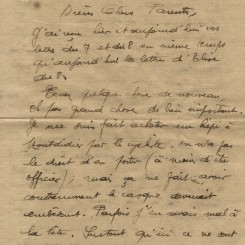 Biens Chers Parents,
J'ai reçu hier et aujourd'hui vos
lettres du 7 et du 8 en même temps
qu'aujourd'hui la lettre d'Elise
du 8.
Pas quelque chose de nouveau
oh pas grand chose de bien important.
Je me suis fait acheter un képi à
Montdidier par le cycliste, on n'a pas
le droit d'en porter (à moins d'être
officier); mais ça ne fait, avoir
continuellement le casque devenait
embêtant. Parfois j'en avais mal à
la tête. Surtout qu'ici ce ne sont